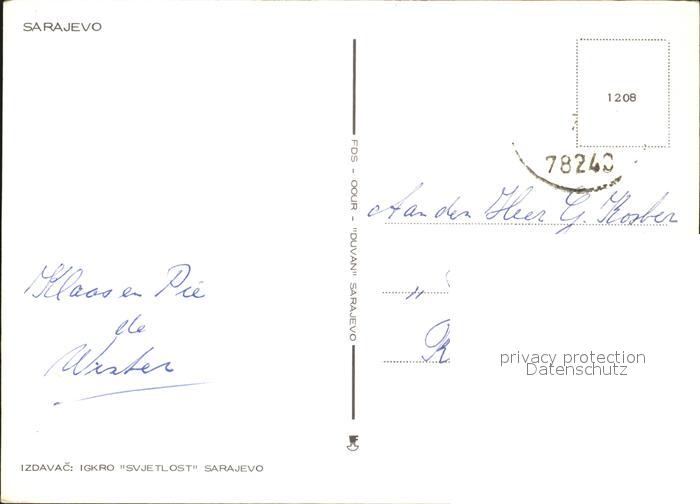 SARAJEVO
1208
78240
FDS - OOUR - "DUVAN" SARAJEVO
Aan den Heer G. Kosber
"
K
Klaas en Pie
de
Wester
privacy protection
Datenschutz
IZDAVAČ: IGKRO "SVJETLOST" SARAJEVO